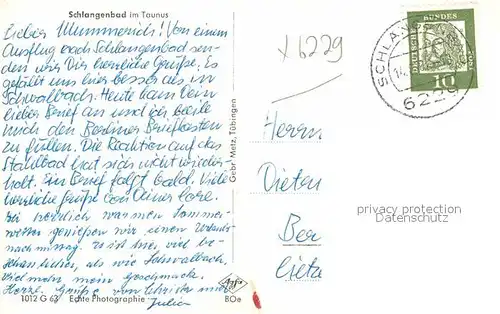 Schlangenbad im Taunus
Lieber Mummerich! Von einem
Ausflug nach Schlangenbad sen-
den wir Dir herzliche Grüße. Es
gefällt uns hier besser als in
Schwalbach. Heute kam Dein
lieber Brief an und ich beeile
mich den Berliner Briefkasten
zu füllen. Die Reaktion auf das
Stahlbad hat sich nicht wieder-
holt. Ein Brief folgt bald. Viele
herzliche Grüße von Deiner Lore.
Bei herrlich warmem Sommer-
wetter genießen wir einen Urlaubs-
nachmittag. Es ist hier viel be-
schaulicher, als wie Schwalbach,
viel mehr mein Geschmack.
Herzl. Grüße von
1012 G 63 Echte Photographie
BOe
Gebr. Metz, Tübingen
Agfa
x 6229
SCHLA
14.
6229
DEUTSCHE BUNDESPOST
10
Herrn
Dieten
Ber
privacy protection
Datenschutz